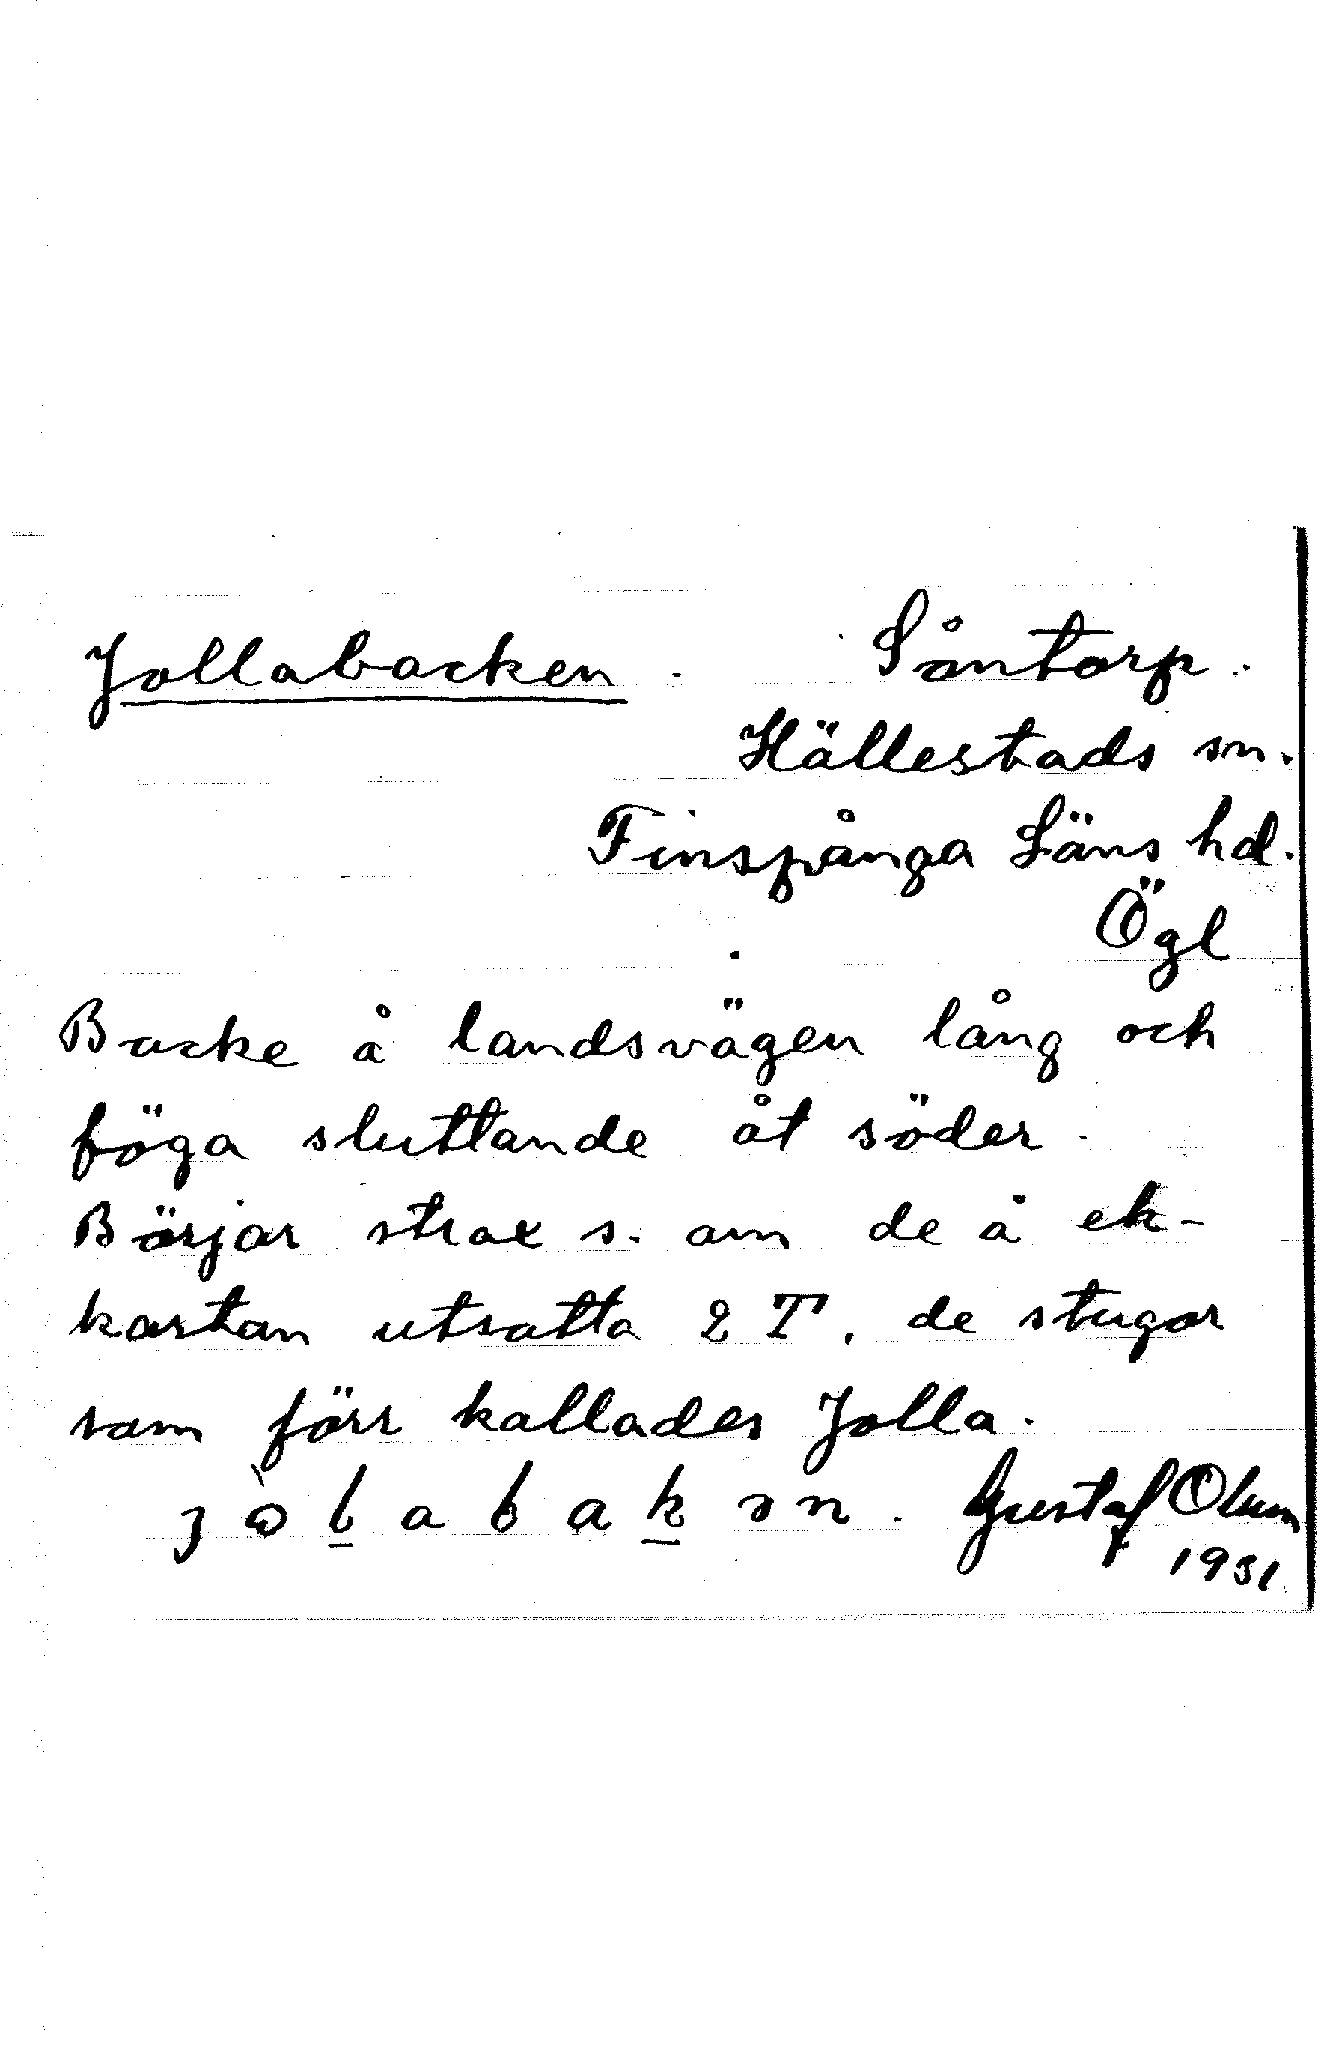 Jollabacken. Såntorp.
Hällestads sn.
Finspånga Läns hd.
Ögl
Backe å landsvägen lång och
föga sluttande åt söder.
Börjar strax s. om de å ek-
kartan utsatta 2 T. de stugor
som förr kallades Jolla.
Gustaf
1931